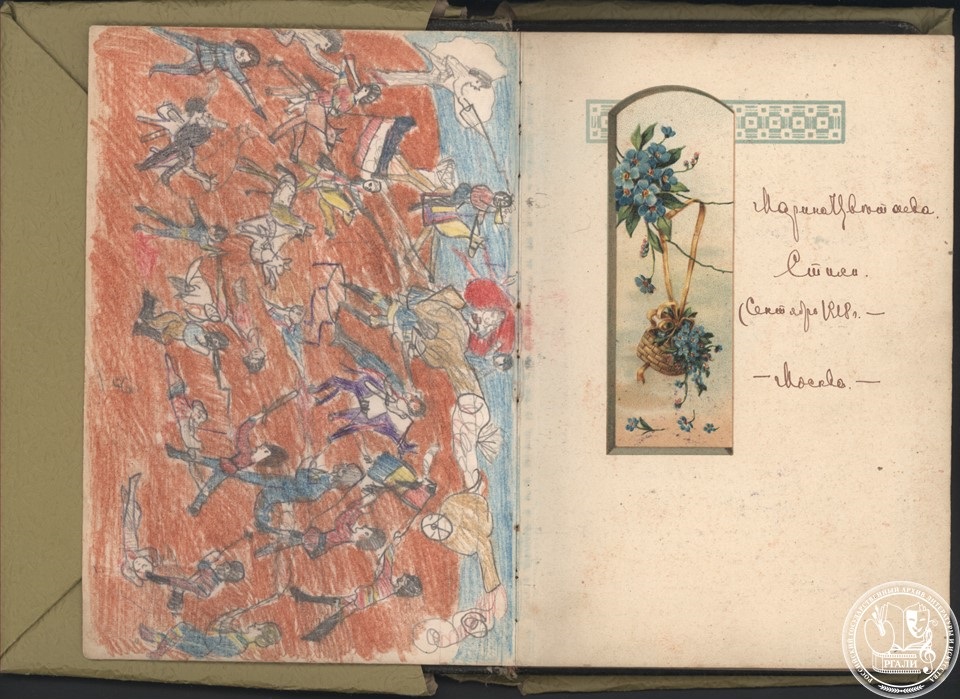 Марина Цвѣтаева.
Стихи.
(Сентябрь 1918 г. —
— Москва. —
РОССИЙСКИЙ ГОСУДАРСТВЕННЫЙ АРХИВ ЛИТЕРАТУРЫ И ИСКУССТВА
РГАЛИ